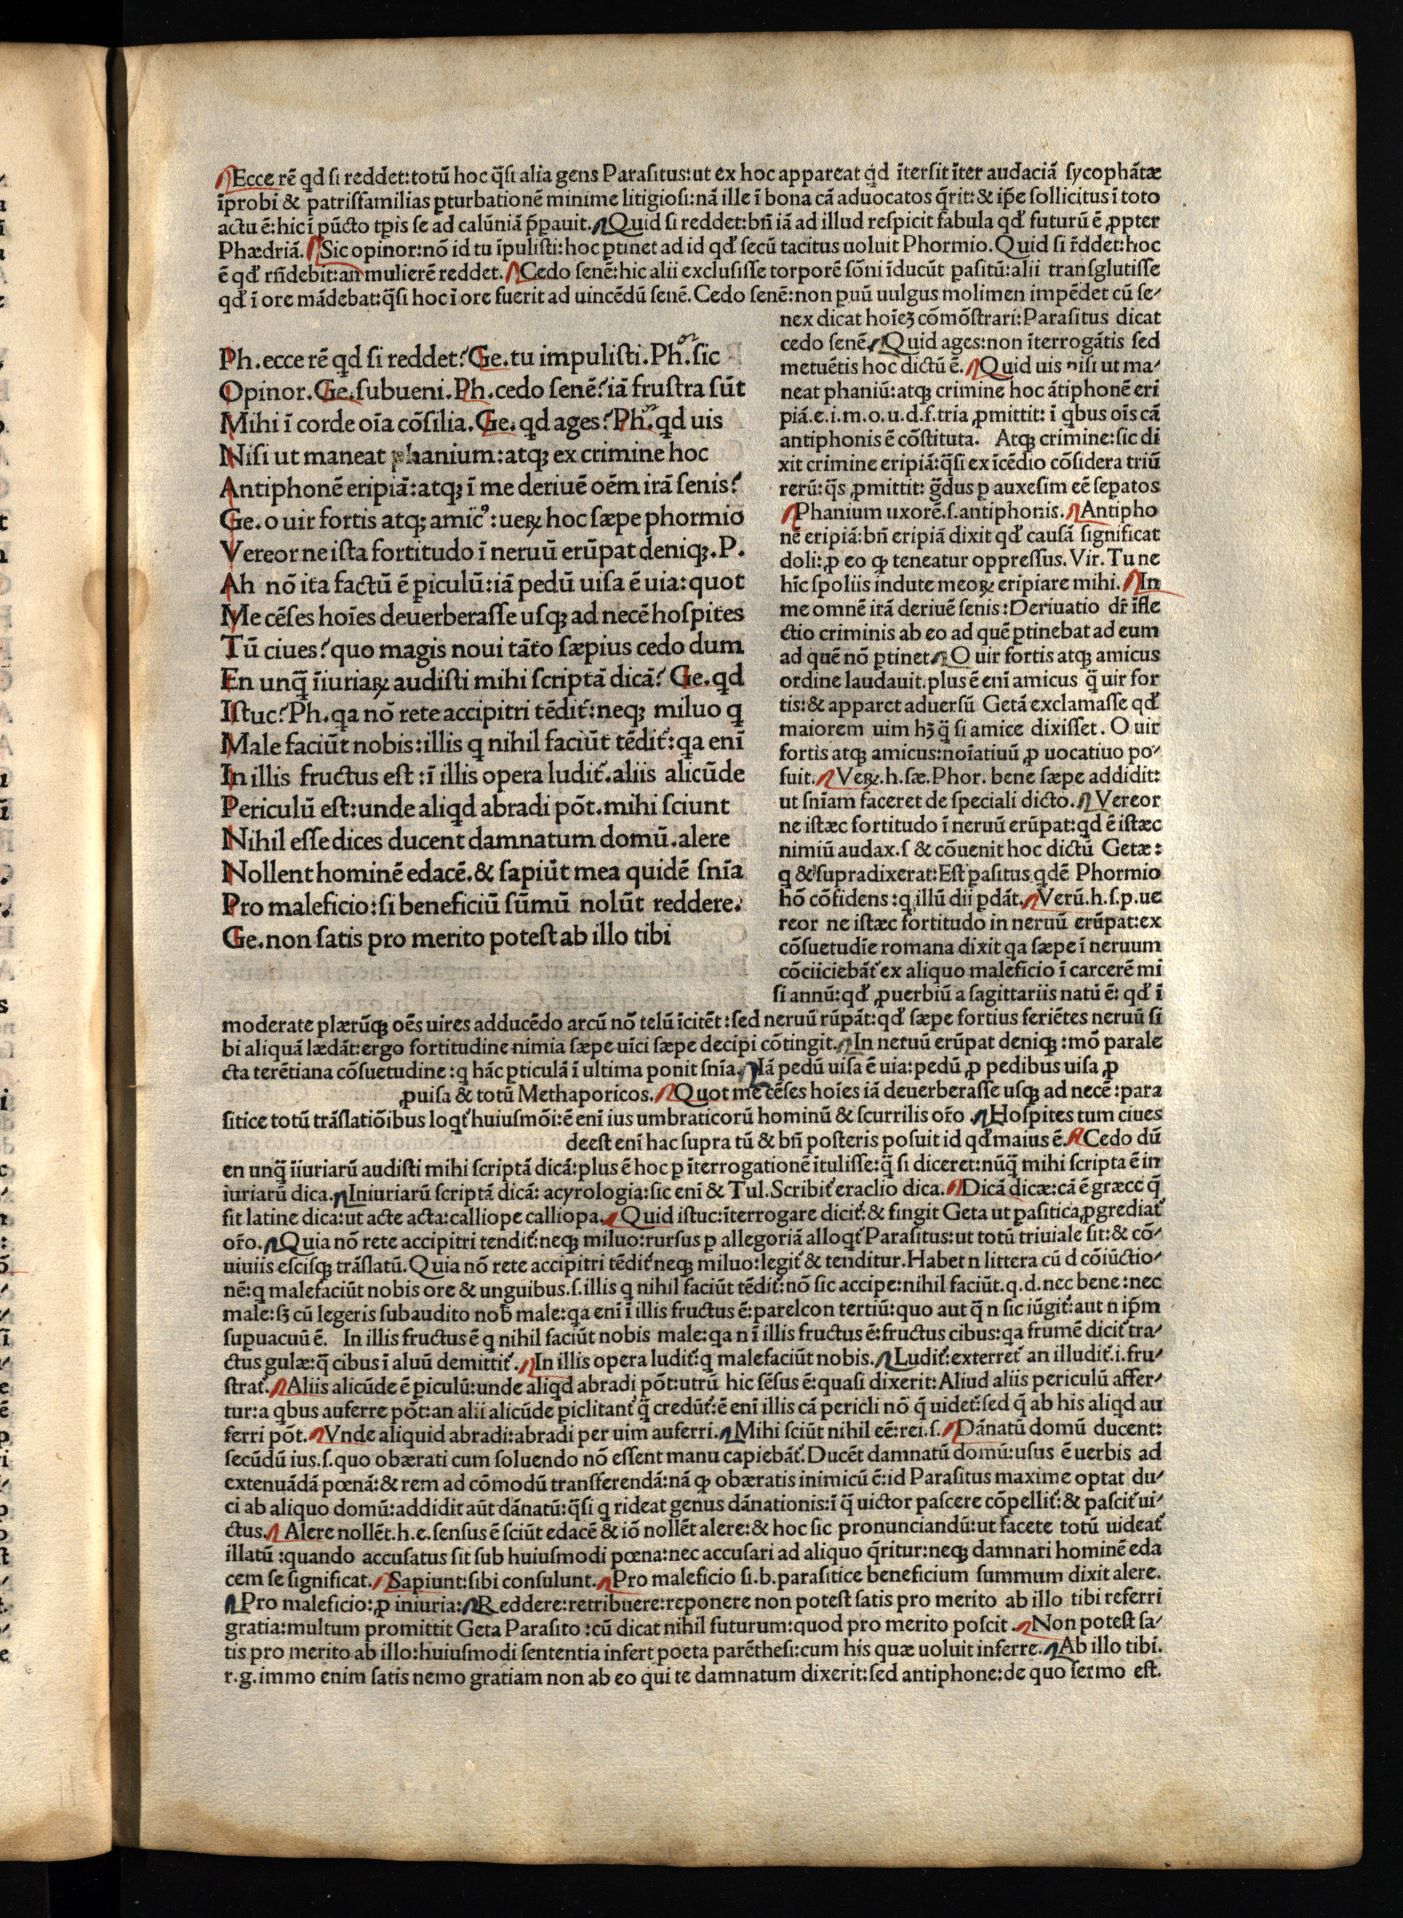 Ecce rē qd si reddet:totū hoc q̄si alia gens Parasitus:ut ex hoc appareat qd ītersit īter audaciā sycophātæ
īprobi & patrisfamilias ꝑturbationē minime litigiosi:nā ille ī bona cā aduocatos q̄rit:& ip̄e sollicitus ī toto
actu ē:hic ī pūcto tꝑis se ad calūniā p̄ꝑauit. Quid si reddet:bn̄ iā ad illud respicit fabula qd̄ futurū ē ꝓpter
Phædriā. Sic opinor:nō id tu īpulisti:hoc ꝑtinet ad id qd̄ secū tacitus uoluit Phormio. Quid si r̄ddet:hoc
ē qd̄ rn̄debit:an mulierē reddet. Cedo senē:hic alii exclusisse torporē sōni īducūt ꝑasitū:alii transglutisse
qd̄ ī ore mādebat:q̄si hoc ī ore fuerit ad uincēdū senē. Cedo senē:non ꝑuū uulgus molimen impēdet cū se-
Ph. ecce rē qd si reddet? Ge. tu impulisti. Ph. sic
Opinor. Ge. subueni. Ph. cedo senē? iā frustra sūt
Mihi ī corde oīa cōsilia. Ge. qd ages? Ph. qd uis
Nisi ut maneat phanium:atqꝫ ex crimine hoc
Antiphonē eripiā:atqꝫ ī me deriuē oēm irā senis?
Ge. o uir fortis atqꝫ amicꝰ:ueꝝ hoc sæpe phormio
Vereor ne ista fortitudo ī neruū erūpat deniqꝫ. P.
Ah nō ita factū ē ꝑiculū:iā pedū uisa ē uia:quot
Me cēses hoīes deuerberasse usqꝫ ad necē hospites
Tū ciues? quo magis noui tāto sæpius cedo dum
En unq̄ īiuriaꝝ audisti mihi scriptā dicā? Ge. qd
Istuc? Ph. qa nō rete accipitri tēdit᷑:neqꝫ miluo q
Male faciūt nobis:illis q nihil faciūt tēdit᷑:qa enī
In illis fructus est:ī illis opera ludit᷑. aliis alicūde
Periculū est:unde aliqd abradi pōt. mihi sciunt
Nihil esse dices ducent damnatum domū. alere
Nollent hominē edacē. & sapiūt mea quidē snīa
Pro maleficio:si beneficiū sūmū nolūt reddere.
Ge. non satis pro merito potest ab illo tibi
nex dicat hoīeꝫ cōmōstrari:Parasitus dicat
cedo senē. Quid ages:non īterrogātis sed
metuētis hoc dictū ē. Quid uis nisi ut ma-
neat phaniū:atqꝫ crimine hoc ātiphonē eri
piā.e.i.m.o.u.d.s.tria ꝓmittit: ī qbus oīs cā
antiphonis ē cōstituta. Atqꝫ crimine:sic di
xit crimine eripiā:q̄si ex īcēdio cōsidera triū
rerū:q̄s ꝓmittit: ḡdus ꝑ auxesim eē seꝑatos
Phanium uxorē.s.antiphonis. Antipho
nē eripiā:bn̄ eripiā dixit qd̄ causā significat
doli:ꝓ eo qꝫ teneatur oppressus. Vir. Tu ne
hīc spoliis indute meoꝝ eripiare mihi. In
me omnē irā deriuē senis:Deriuatio dr̄ īfle
ctio criminis ab eo ad quē ꝑtinebat ad eum
ad quē nō ꝑtinet. O uir fortis atqꝫ amicus
ordine laudauit.plus ē enī amicus q̄ uir for
tis:& apparet aduersū Getā exclamasse qd̄
maiorem uim hꝫ q̄ si amice dixisset. O uir
fortis atqꝫ amicus:noīatiuū ꝓ uocatiuo po-
suit. Veꝝ.h.sæ. Phor. bene sæpe addidit:
ut snīam faceret de speciali dicto. Vereor
ne istæc fortitudo ī neruū erūpat:qd ē istæc
nimiū audax.s & cōuenit hoc dictū Getæ:
q & supradixerat:Est ꝑasitus qdē Phormio
hō cōfidens:q illū dii ꝑdāt. Verū.h.s.p.ue
reor ne istæc fortitudo in neruū erūpat:ex
cōsuetudīe romana dixit qa sæpe ī neruum
cōciiciebāt᷑ ex aliquo maleficio ī carcerē mi
si annū:qd̄ ꝓuerbiū a sagittariis natū ē: qd̄ ī
moderate plærūqꝫ oēs uires adducēdo arcū nō telū īcitēt:sed neruū rūpāt:qd̄ sæpe fortius feriētes neruū si
bi aliquā lædāt:ergo fortitudine nimia sæpe uīci sæpe decipi cōtingit. In neruū erūpat deniqꝫ:mō parale
cta terētiana cōsuetudine:q hāc ꝑticulā ī ultima ponit snīa. Iā pedū uisa ē uia:pedū ꝓ pedibus uisa ꝓ
ꝓuisa & totū Methaporicos. Quot me cēses hoīes iā deuerberasse usqꝫ ad necē:para
sitice totū trāslatiōibus loqt᷑ huiusmōi:ē enī ius umbraticorū hominū & scurrilis or̄o Hospites tum ciues
deest enī hac supra tū & bn̄ posteris posuit id qd̄ maius ē. Cedo dū
en unq̄ īiuriarū audisti mihi scriptā dicā:plus ē hoc ꝑ īterrogationē ītulisse:q̄ si diceret:nūq̄ mihi scripta ē in
iuriarū dica. Iniuriarū scriptā dicā: acyrologia:sic enī & Tul. Scribit᷑ eraclio dica. Dicā dicæ:cā ē græce q̄
sit latine dica:ut acte acta:calliope calliopa. Quid istuc:īterrogare dicit᷑:& fingit Geta ut ꝑasitica ꝓgrediat᷑
or̄o. Quia nō rete accipitri tendit᷑:neqꝫ miluo:rursus ꝑ allegoriā alloqt᷑ Parasitus:ut totū triuiale sit:& cō-
uiuiis escisqꝫ trāslatū. Quia nō rete accipitri tēdit᷑ neqꝫ miluo:legit᷑ & tenditur. Habet n littera cū d cōiūctio-
nē:q malefaciūt nobis ore & unguibus.s.illis q nihil faciūt tēdit᷑:nō sic accipe:nihil faciūt.q.d.nec bene:nec
male:sꝫ cū legeris subaudito nob̄ male:qa enī ī illis fructus ē:parelcon tertiū:quo aut q̄ n sic iūgit᷑:aut n ip̄m
suꝑuacuū ē. In illis fructus ē q nihil faciūt nobis male:qa n ī illis fructus ē:fructus cibus:qa frumē dicit᷑ tra-
ctus gulæ:q̄ cibus ī aluū demittit᷑. In illis opera ludit᷑:q malefaciūt nobis. Ludit᷑:exterret᷑ an illudit᷑.i.fru-
strat᷑. Aliis alicūde ē ꝑiculū:unde aliqd abradi pōt:utrū hic sēsus ē:quasi dixerit:Aliud aliis periculū affer-
tur:a qbus auferre pōt:an alii alicūde ꝑiclitant᷑ q̄ credūt᷑:ē enī illis cā pericli nō q̄ uidet᷑:sed q̄ ab his aliqd au
ferri pōt. Vnde aliquid abradi:abradi per uim auferri. Mihi sciūt nihil eē:rei.s. Dānatū domū ducent:
secūdū ius.s.quo obærati cum soluendo nō essent manu capiebāt᷑. Ducēt damnatū domū:usus ē uerbis ad
extenuādā pœnā:& rem ad cōmodū transferendā:nā qꝫ obæratis inimicū ē:id Parasitus maxime optat du-
ci ab aliquo domū:addidit aūt dānatū:q̄si q rideat genus dānationis:ī q̄ uictor pascere cōpellit᷑:& pascit᷑ ui-
ctus. Alere nollēt.h.e.sensus ē sciūt edacē & iō nollēt alere:& hoc sic pronunciandū:ut facete totū uideat᷑
illatū:quando accusatus sit sub huiusmodi pœna:nec accusari ad aliquo q̄ritur:neqꝫ damnari hominē eda
cem se significat. Sapiunt:sibi consulunt. Pro maleficio si.b.parasitice beneficium summum dixit alere.
Pro maleficio:ꝓ iniuria: Reddere:retribuere:reponere non potest satis pro merito ab illo tibi referri
gratia:multum promittit Geta Parasito:cū dicat nihil futurum:quod pro merito poscit. Non potest sa-
tis pro merito ab illo:huiusmodi sententia infert poeta parēthesi:cum his quæ uoluit inferre. Ab illo tibi.
r.g.immo enim satis nemo gratiam non ab eo qui te damnatum dixerit:sed antiphone:de quo sermo est.